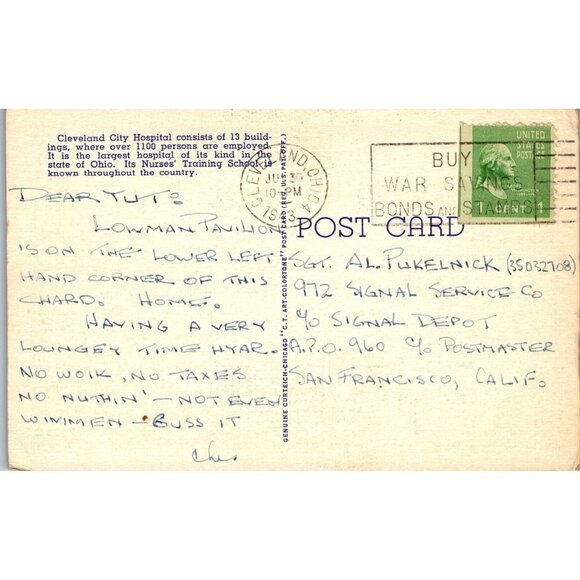 Cleveland City Hospital consists of 13 build-
ings, where over 1100 persons are employed.
It is the largest hospital of its kind in the
state of Ohio. Its Nurses' Training School is
known throughout the country.
DEAR TUT:
LOWMAN PAVILION
IS ON THE LOWER LEFT
HAND CORNER OF THIS
CHARD. HOME.
HAVING A VERY
LOUNGEY TIME HYAR.
NO WOIK, NO TAXES
NO NUTHIN' - NOT EVEN
WIMMEN - BUSS IT
GENUINE CURTEICH-CHICAGO "C.T. ART-COLORTONE" POST CARD (REG. U.S. PAT. OFF.)
CLEVELAND, OHIO
10 PM
BUY
WAR SAVINGS
BONDS AND STAMPS
UNITED
STATES
POSTAGE
1 CENT 1
POST CARD
SGT. AL PUKELNICK (35032708)
972 SIGNAL SERVICE CO
c/o SIGNAL DEPOT
A.P.O. 960 c/o POSTMASTER
SAN FRANCISCO, CALIF.